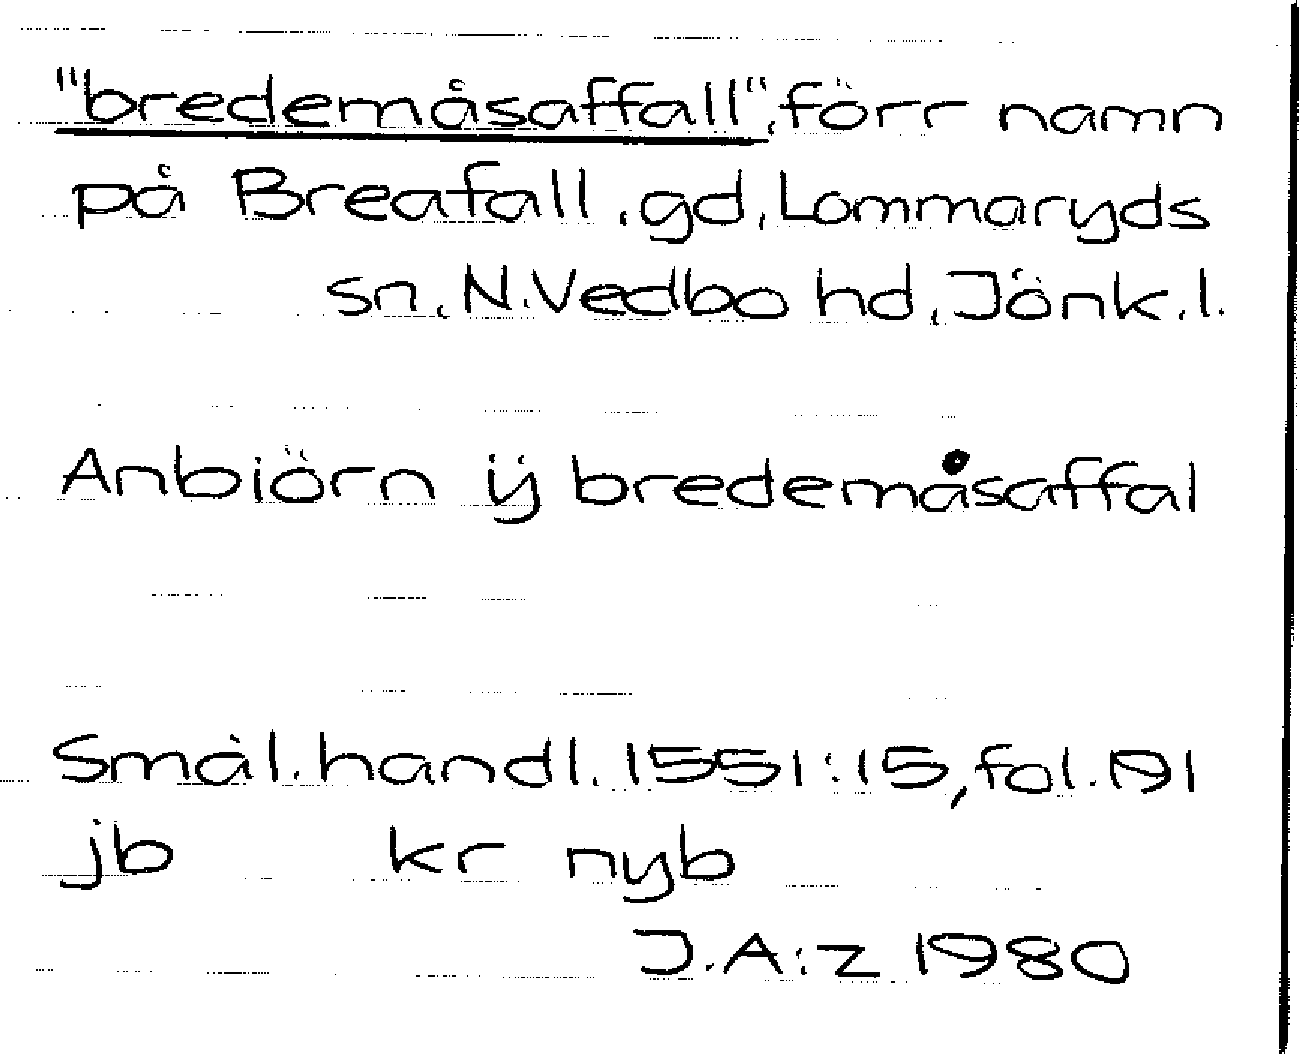 "bredemåsaffall", förr namn
på Breafall, gd, Lommaryds
sn, N.Vedbo hd, Jönk.l.
Anbiörn ÿ bredemåsaffal
Smål.handl. 1551:15, fol.191
jb kr nyb
J.A:z 1980